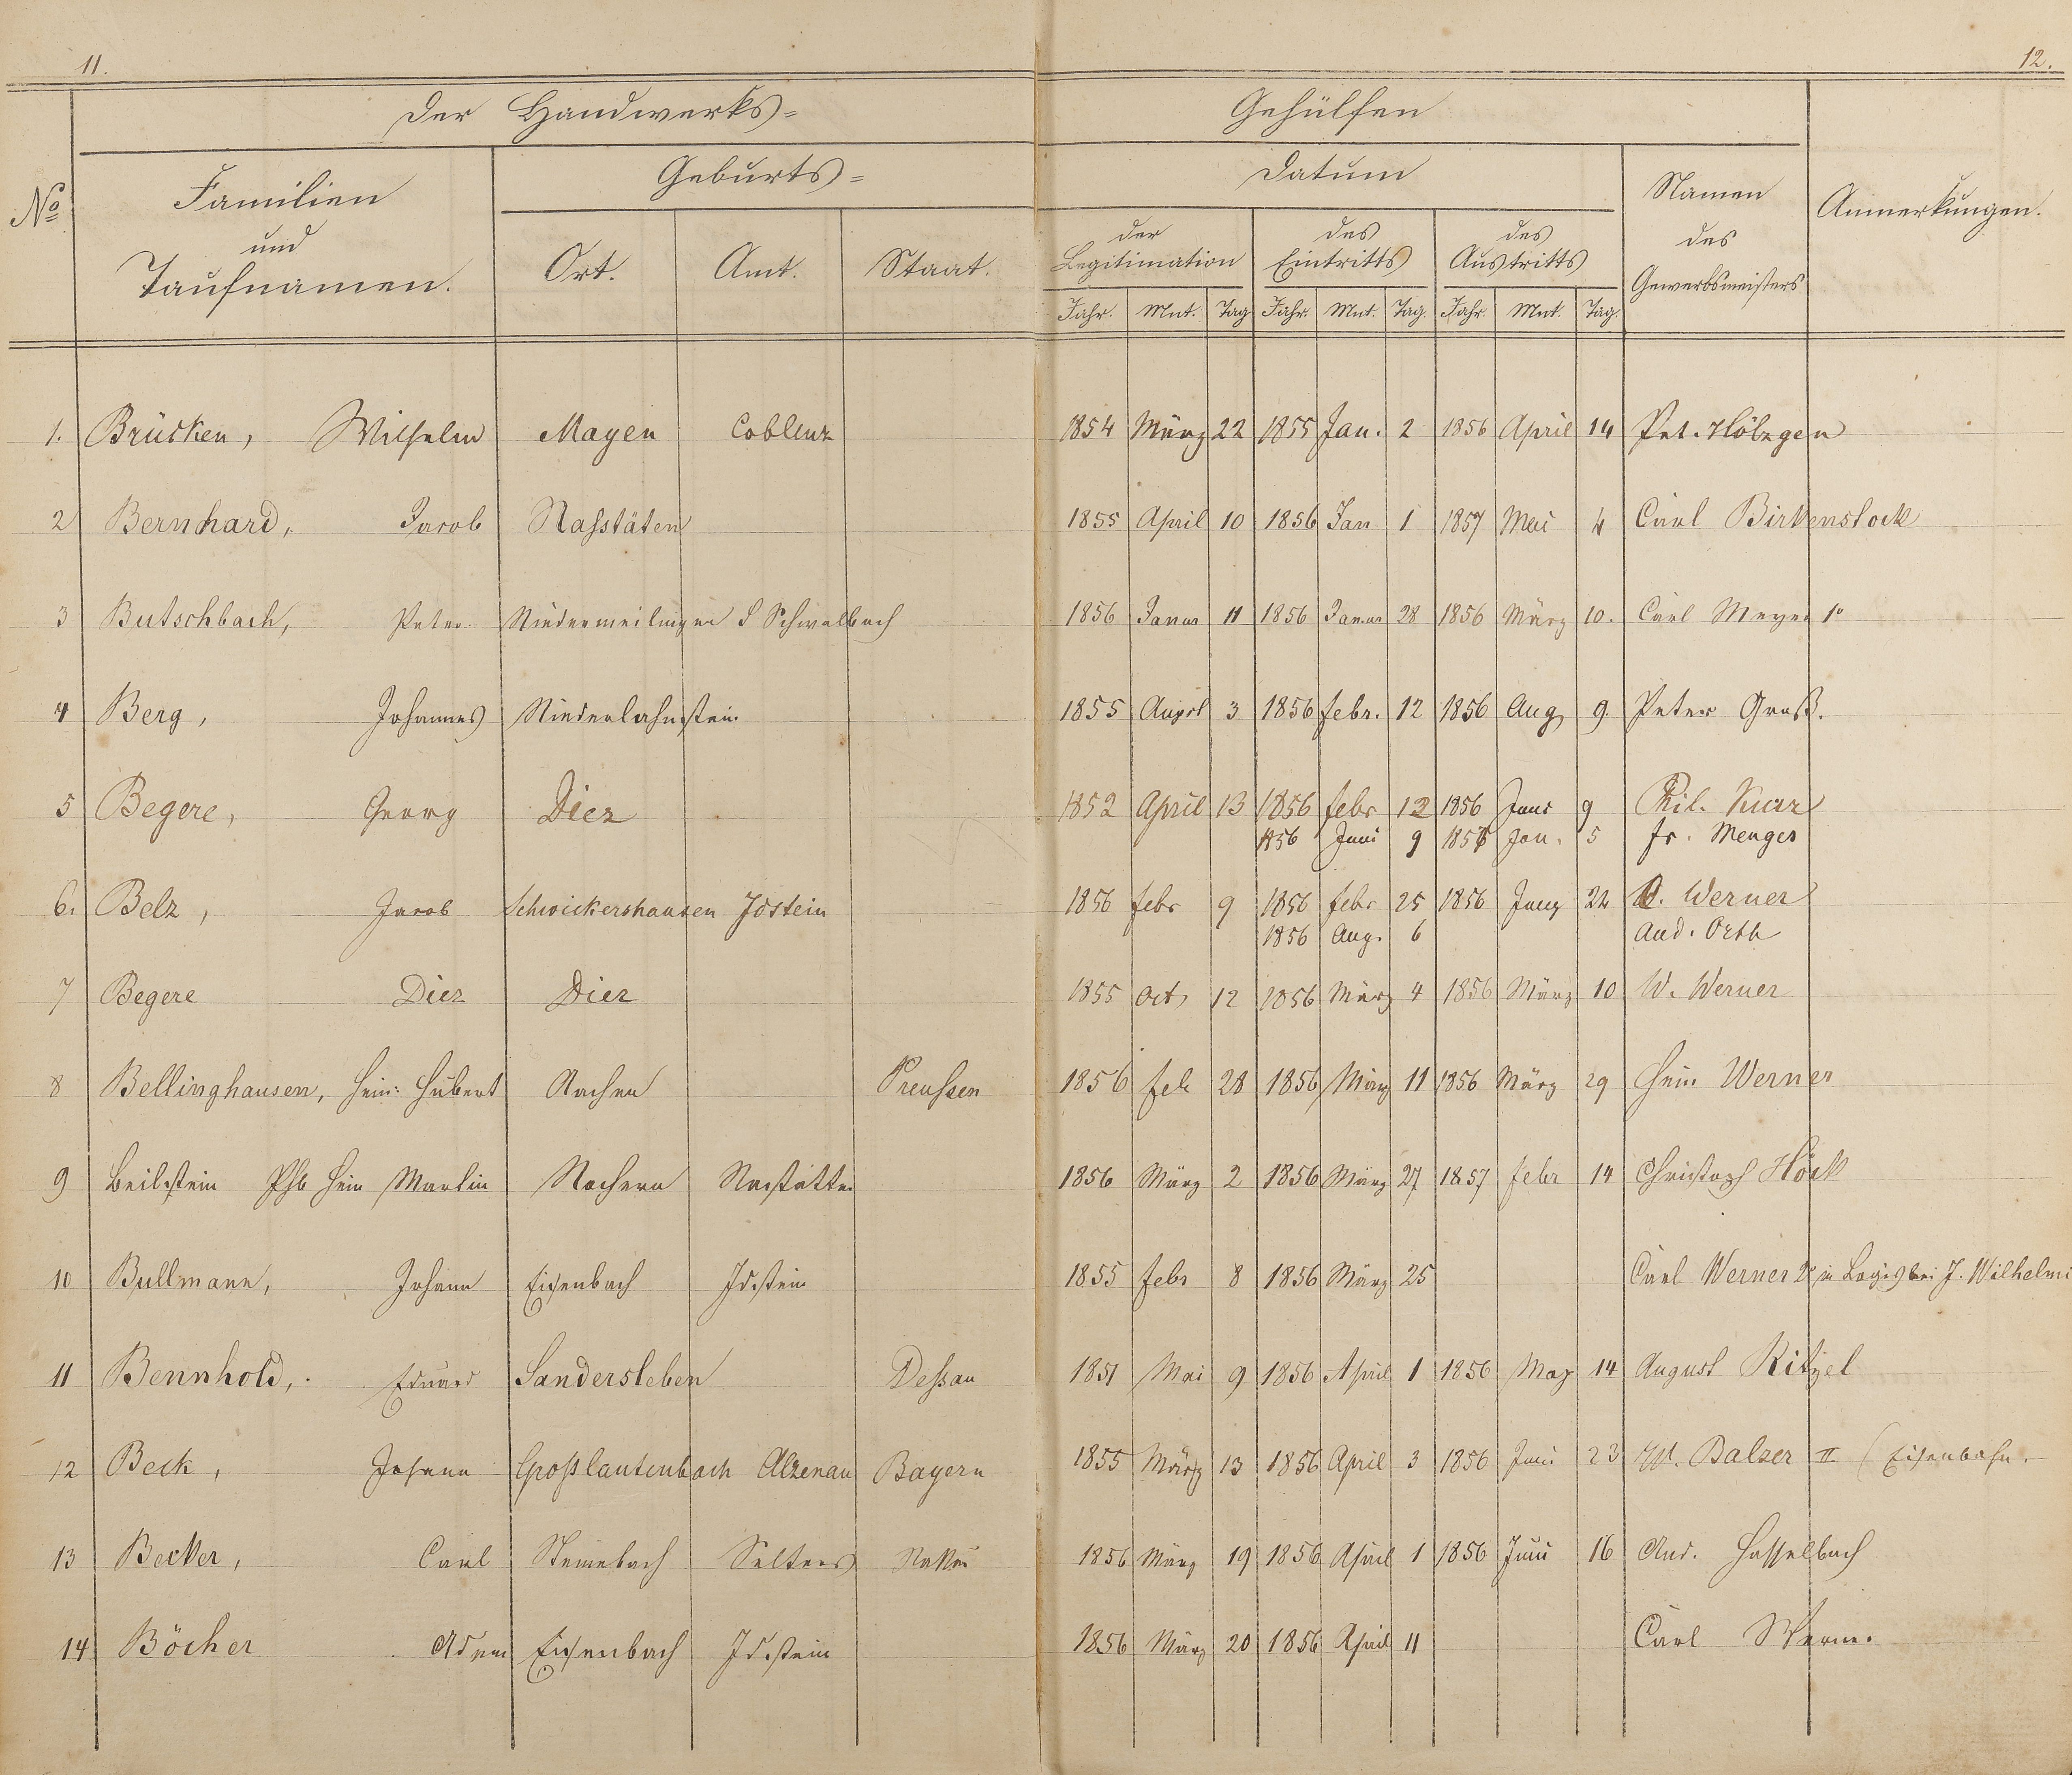 11.
12.
Der Handwerks= Gehülfen
No Familien und Taufnamen. Geburts= Datum Namen des Gewerbsmeisters Anmerkungen.
Ort. Amt. Staat. der Legitimation des Eintritts des Austritts
Jahr. Mnt. Tag Jahr. Mnt. Tag. Jahr. Mnt. Tag.
1. Brücken, Wilhelm Mayen Coblenz 1854 März 22 1855 Jan. 2 1856 April 14 Pet. Hölzgen
2 Bernhard, Jacob Naßtäten 1855 April 10 1856 Jan 1 1857 Mai 4 Carl Birkenstock
3 Butschbach, Peter Niedermeilingen L Schwalbach 1856 Januar 11 1856 Januar 28 1856 März 10. Carl Meyer 1r
4 Berg, Johannes Niederlahnstein 1855 August 3 1856 febr. 12 1856 Aug 9 Peter Groß.
5 Begere, Georg Diez 1852 April 13 1856 febr 12 1856 Juni 9 Phil. Kurz
1856 Juni 9 1857 Jan. 5 fr. Menges
6. Belz, Jacob Schwickershausen Idstein 1856 febr 9 1856 febr 25 1856 Juny 22 W. Werner
1856 Aug. 6 And. Orth
7 Begere Diez Diez 1855 Oct 12 1856 März 4 1856 März 10 W. Werner
8 Bellinghausen, Hein: Hubert Aachen Preußen 1856 feb 28 1856 März 11 1856 März 29 Hein Werner
9 Beilstein Phb Hein Martin Nochern Nastätten 1856 März 2 1856 März 27 1857 febr 14 Christoph Höck
10 Bullmann, Johann Eisenbach Idstein 1855 febr 8 1856 März 25 Carl Werner 2r in Logis bei J. Wilhelmi
11 Bennhold, Eduard Sandersleben Deßau 1851 Mai 9 1856 April 1 1856 May 14 August Ritzel
12 Beck, Johann Großlautenbach Alzenau Bayern 1855 März 13 1856 April 3 1856 Juni 23 W. Balzer II (Eisenbahn.
13 Becker, Carl Steinebach Selters Nassau 1856 März 19 1856 April 1 1856 Juni 16 And. Hasselbach
14 Böcher Adam Eisenbach Idstein 1856 März 20 1856 April 11 Carl